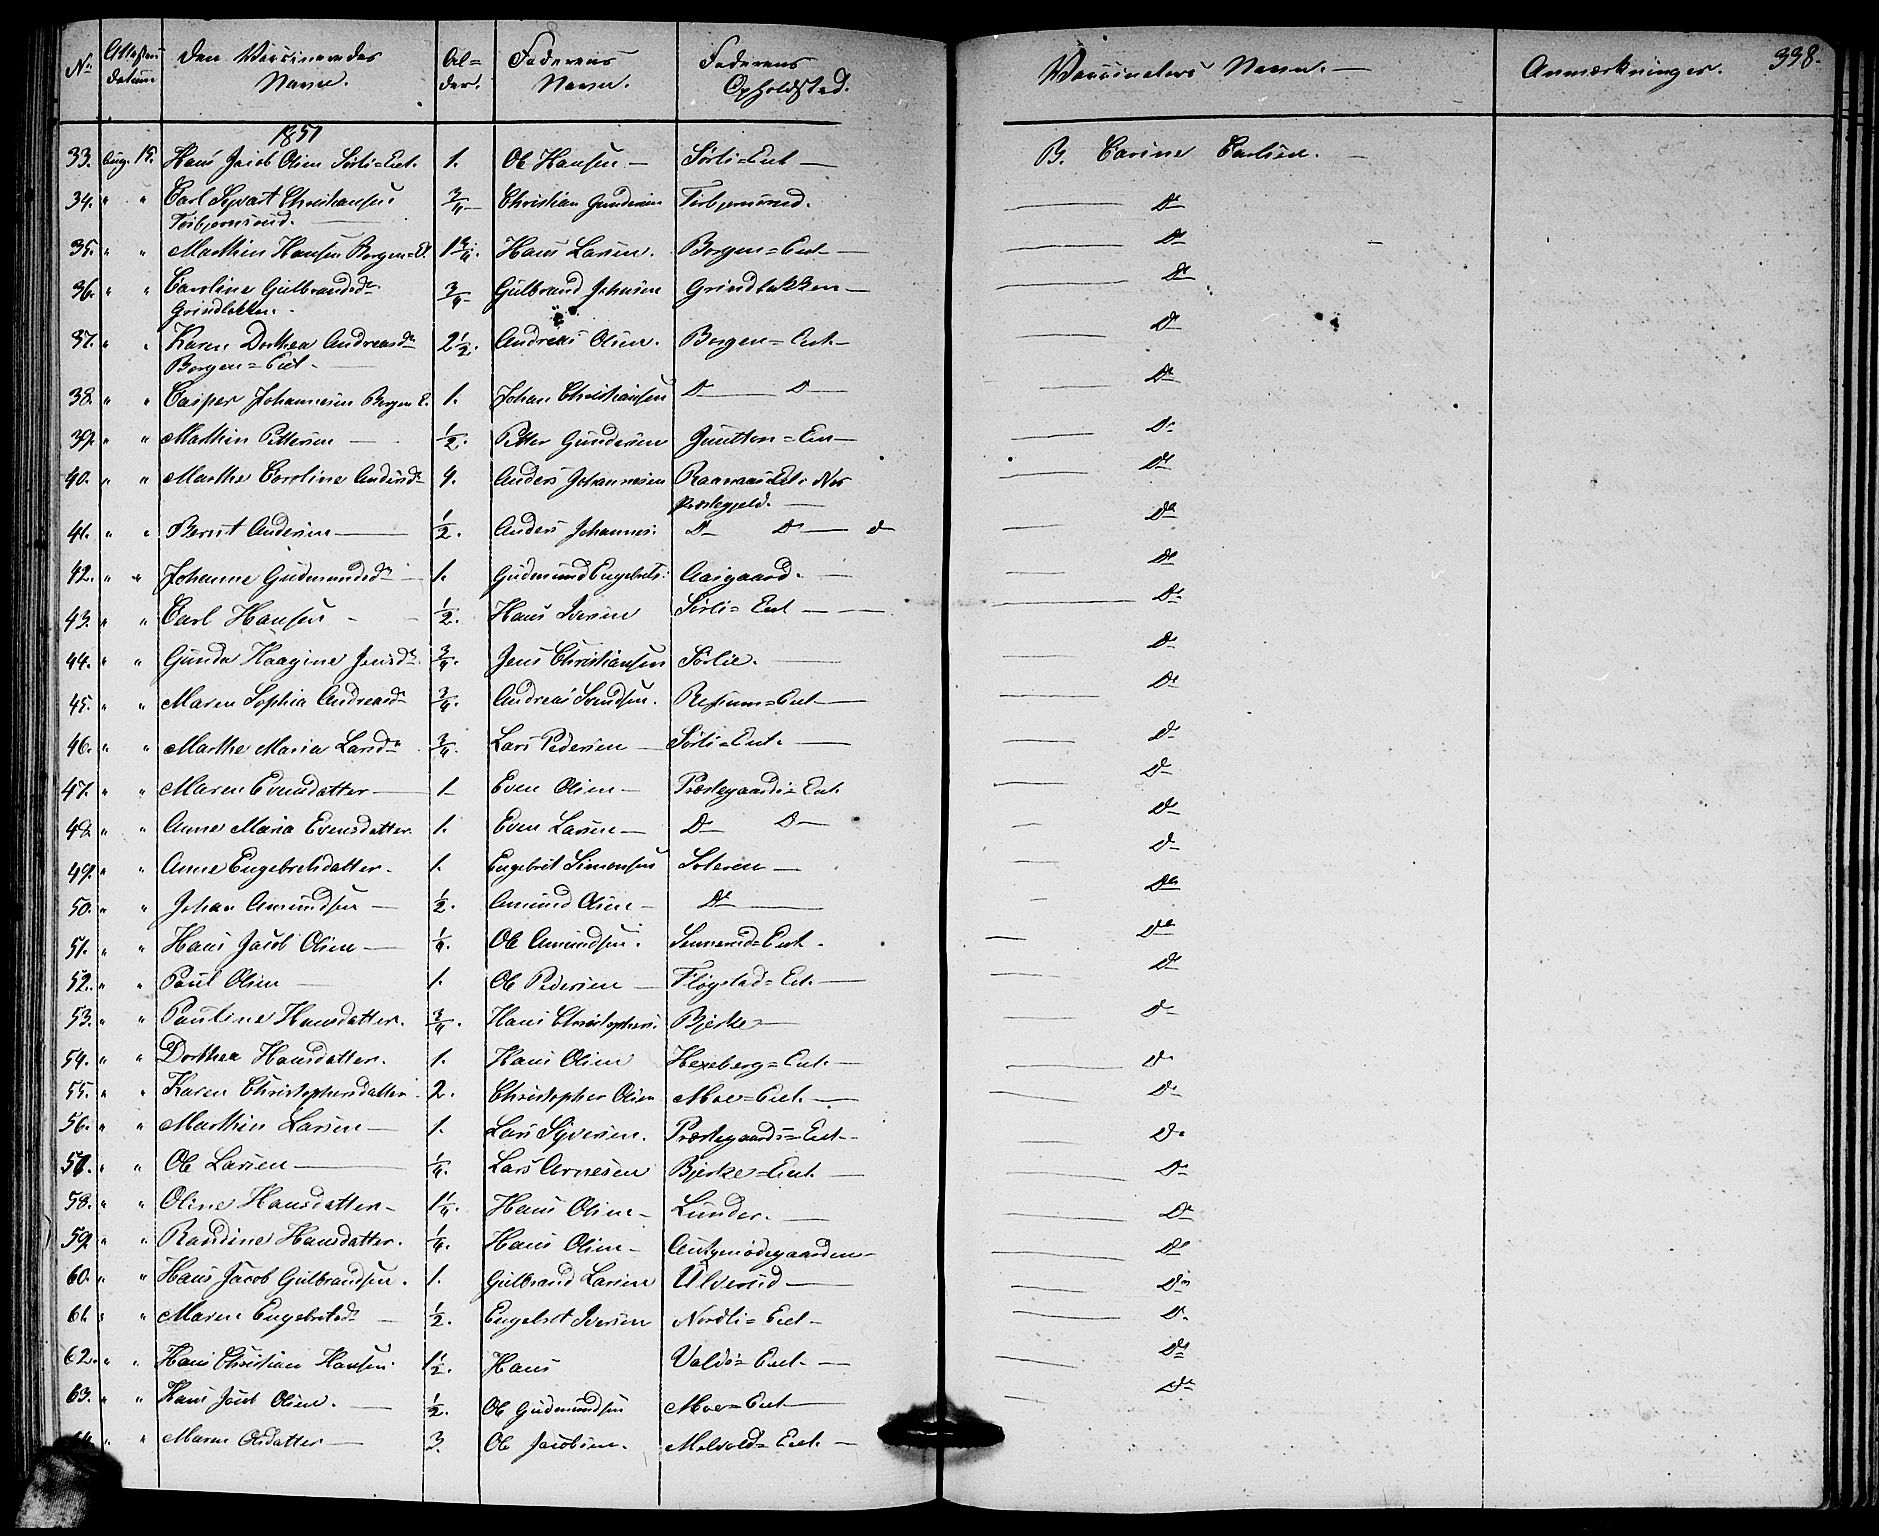 No. Attestens Datum Den Vaccineredes Navn. Alder. Faderens Navn. Faderens Opholdsted. Vaccineters Navn. Anmærkninger. 338.
1851
33. Aug. 15. Hans Jacob Olsen Sørli=Eiet. 1. Ole Hansen — Sørli=Eiet — B. Carine Carlsen. —
34. " " Carl Syvert Christiansen Torbjørnsrud. 3/4 Christian Gundersen Torbjørnsrud. — Do
35. " " Marthin Hansen Borgen=E. 1 3/4. Hans Larsen. Borgen=Eiet — Do
36. " " Caroline Gulbrandsdr Grindlakken. 3/4 Gulbrand Johnsen Grindlakken — Do
37. " " Karen Dorthea Andreasdr Borgen=Eiet. 2 1/2. Andreas Olsen. Borgen=Eiet — Do
38. " " Casper Johannesen Borgen E. 1. Johan Christiansen Do — Do — Do
39. " " Marthin Pettersen — 1/2. Petter Gundersen — Do
40. " " Marthe Caroline Andersdr 4. Anders Johannesen Raanaas Eiet i Næs Præstegjeld. — Do
41. " " Bernt Andersen — 1/2. Anders Johannes: Do Do — Do — Do
42. " " Johanne Gudmundsdr 1. Gudmund Engebrets: Aasgaard. — Do
43. " " Carl Hansen 1/2. Hans Iversen Sørli=Eiet — Do
44. " " Gunda Haagine Jensdr 3/4. Jens Christiansen Sørlie. — Do
45. " " Maren Sophia Andreasdr 3/4. Andreas Svendsen. Refsum=Eiet — Do
46. " " Marthe Maria Larsdr 3/4. Lars Pedersen — Sørli=Eiet. — Do
47. " " Maren Evensdatter — 1 Even Olsen — Præstegaards=Eiet — Do
48. " " Anne Maria Evensdatter. 1. Even Larsen — Do Do — Do
49. " " Anne Engebretsdatter. 1. Engebret Simensen Soteren — Do
50. " " Johan Amundsen — 1/2. Amund Olsen — Do — Do
51. " " Hans Jacob Olsen — 1/4. Ole Amundsen. Sennerud=Eiet. — Do
52. " " Paul Olsen — 1. Ole Pedersen — Fløgstad=Eiet. — Do
53. " " Pauline Hansdatter. 3/4. Hans Christophers: Bjerke — Do
54. " " Dorthea Hansdatter. 1. Hans Olsen Hexeberg=Eiet. — Do
55. " " Karen Christophersdatter. 2. Christopher Olsen Moe=Eiet. — Do
56. " " Marthin Larsen — 1. Lars Syversen. Præstegaards=Eiet — Do
57. " " Ole Larsen — 1/4. Lars Arnesen Bjerke=Eiet. — Do
58. " " Oline Hansdatter — 1 1/4. Hans Olsen — Lunder. — Do
59. " " Randine Hansdatter. 1/4. Hans Olsen — — Do
60. " " Hans Jacob Gulbrandsen. 1. Gulbrand Larsen Ulverud — Do
61. " " Maren Engebretsdr — 1/2. Engebret Iversen Nordli=Eiet — Do
62. " " Hans Christian Hansen. 1 1/2. Hans Valds=Eiet. — Do
63. " " Hans Jacob Olsen. — 1/2. Ole Gudmundsen Moe=Eiet — Do
64. " " Maren Olsdatter — 3. Ole Jacobsen. Melvold=Eiet. —